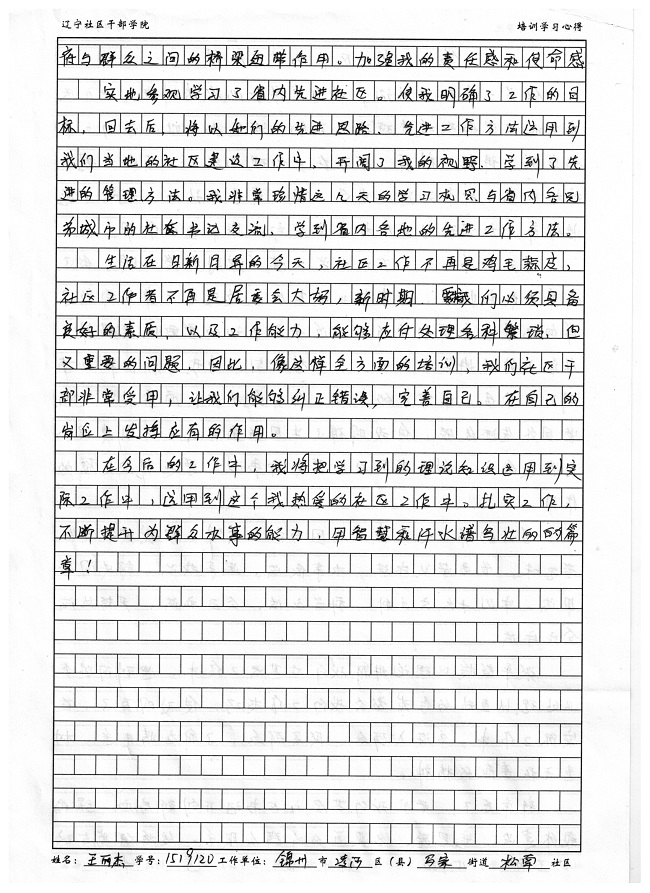 辽宁社区干部学院 培训学习心得
府与群众之间的桥梁纽带作用。加强我的责任感和使命感
实地参观学习了省内先进社区。使我明确了工作的目
标，回去后，将以他们的先进思路、先进工作方法运用到
我们当地的社区建设工作中，开阔了我的视野，学到了先
进的管理方法。我非常珍惜这几天的学习机会与省内各兄
弟城市的社区书记交流，学到省内各地的先进工作方法。
生活在日新月异的今天，社区工作不再是鸡毛蒜皮，
社区工作者不再是居委会大妈，新时期，我们必须具备
良好的素质，以及工作能力，能够应付处理各种繁琐，但
又重要的问题，因此，像这样全方面的培训，我们社区干
部非常受用，让我们能够纠正错误，完善自己。在自己的
岗位上发挥应有的作用。
在今后的工作中，我将把学习到的理论知识运用到实
际工作中，运用到这个我热爱的社区工作中。扎实工作，
不断提升为群众办事的能力，用智慧和汗水谱写壮丽的的篇
章！
姓名：王丽杰 学号：1519120 工作单位：锦州 市 凌河 区（县） 马家 街道 松 社区